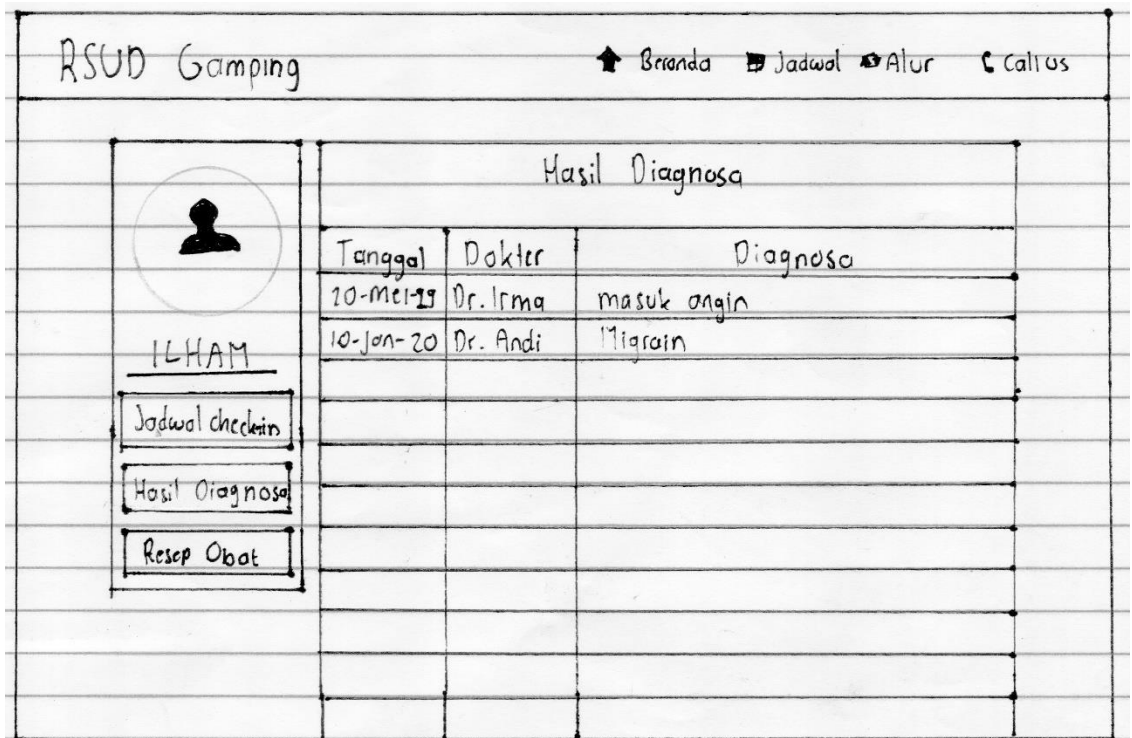 RSUD Gamping
Beranda Jadwal Alur Call us
ILHAM
Jadwal checkin
Hasil Diagnosa
Resep Obat
Hasil Diagnosa
Tanggal Dokter Diagnosa
20-Mei-19 Dr. Irma masuk angin
10-Jan-20 Dr. Andi Migrain